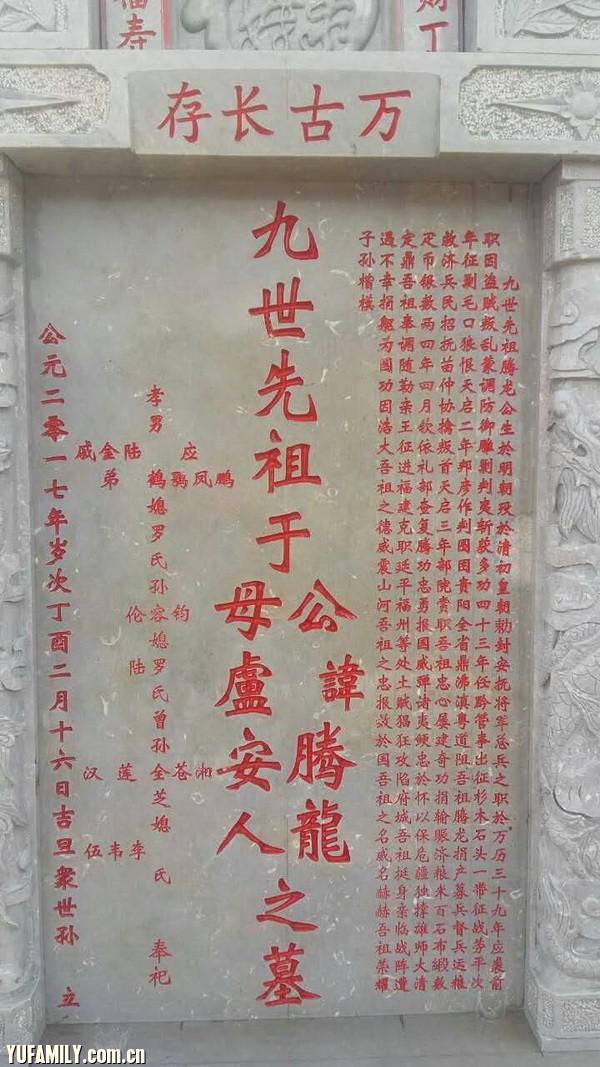 福寿
丁
万古长存
九世先祖腾龙公生於明朝殁於清初皇朝勅封安抚将军总兵之职於万历三十九年应袭前
职因盗贼叛乱蒙调防御雕剿判夷斩获多功四十三年任黔营事出征杉木石头一带征战劳平次
年征剿毛口狼恨天启二年邦彦作判围困贵阳全省鼎沸滇粤道阻吾祖腾龙捐产募兵督兵运粮
救济兵民招抚苗仲协擒叛首天启三年部院赏职吾祖忠心屡建奇功捐输赈济粮米百石布缎数
疋币银数两四年四月钦依礼部查复腾功忠勇报国威弹诸夷鲠忠於怀以保危疆独撑雄师大清
定鼎吾祖奉调随勤亲王征进福建克职延平福州等处土贼猖狂攻陷府城吾祖挺身亲临战阵遭
遇不幸捐躯为国功因浩大吾祖之德威震山河吾祖之忠报效於国吾祖之名威名赫赫吾祖荣耀
子孙楷模
九世先祖于
公諱腾龍
母盧安人
之墓
孝男
应
鹏凤鹗鹤
媳罗氏
陆金戚弟
孙
钧容伦
媳罗氏陆
曾孙
湘苍全莲汉
芝媳
李韦伍氏
奉祀
公元二零一七年岁次丁酉二月十六日吉旦衆世孙 立
YUFAMILY.com.cn